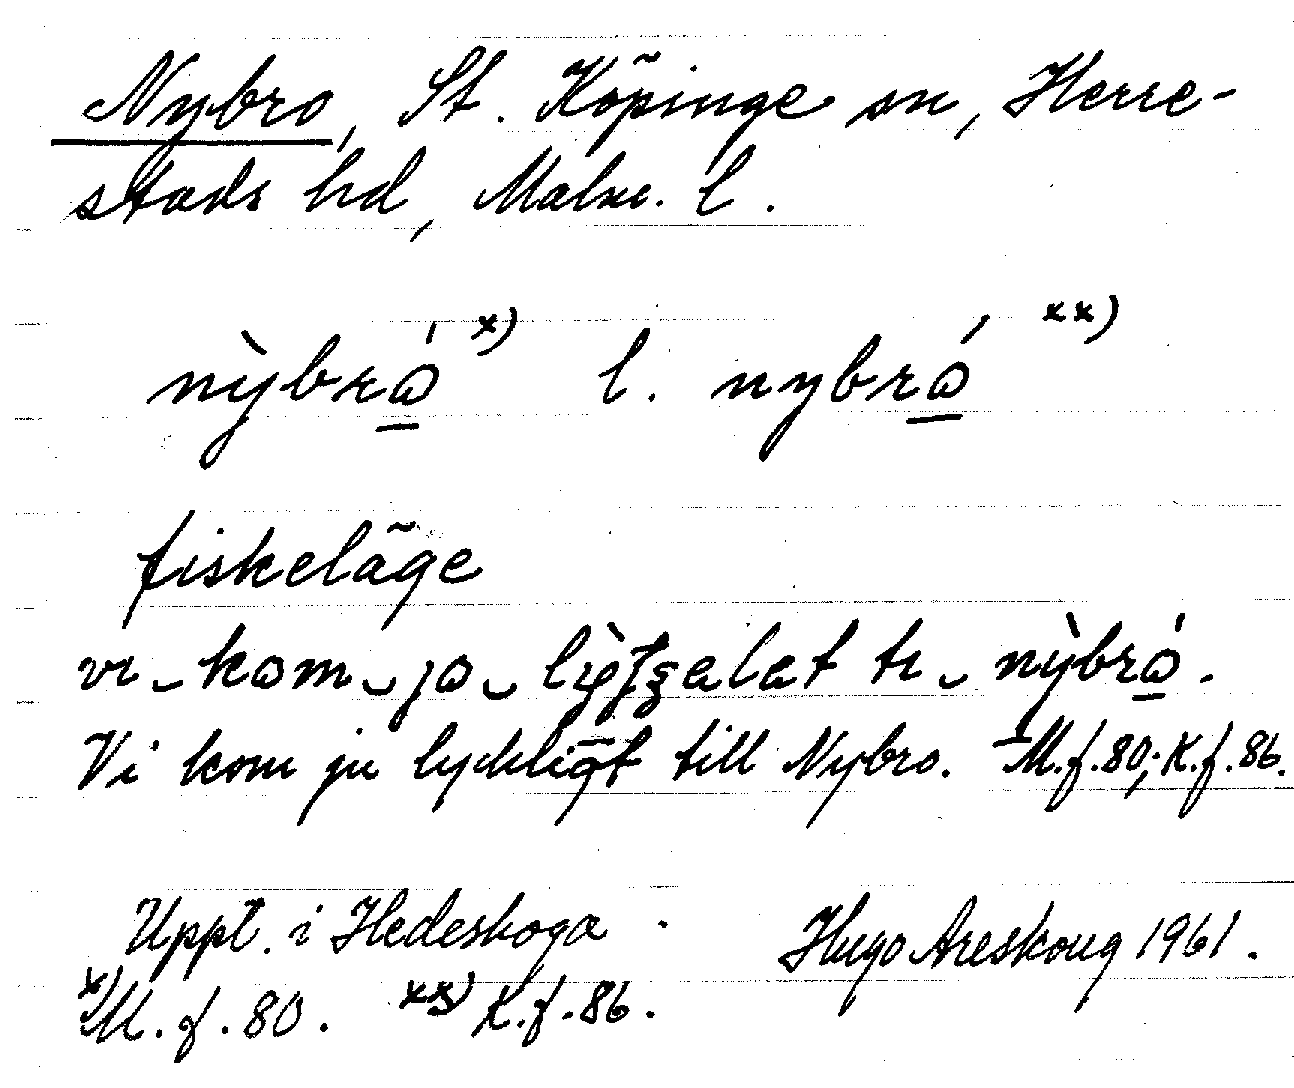 Nybro, St. Köpinge sn, Herre-
stads hd, Malm. l.
nỳbró̲ x) l. nybró̲ xx)
fiskeläge
vi‿kom‿jo‿ ti‿nỳbró̲.
Vi kom ju lyckligt till Nybro. M.f.80; K.f.86.
Uppt. i Hedeskoga. Hugo Areskoug 1961.
x) M.f.80. xx) K.f.86.